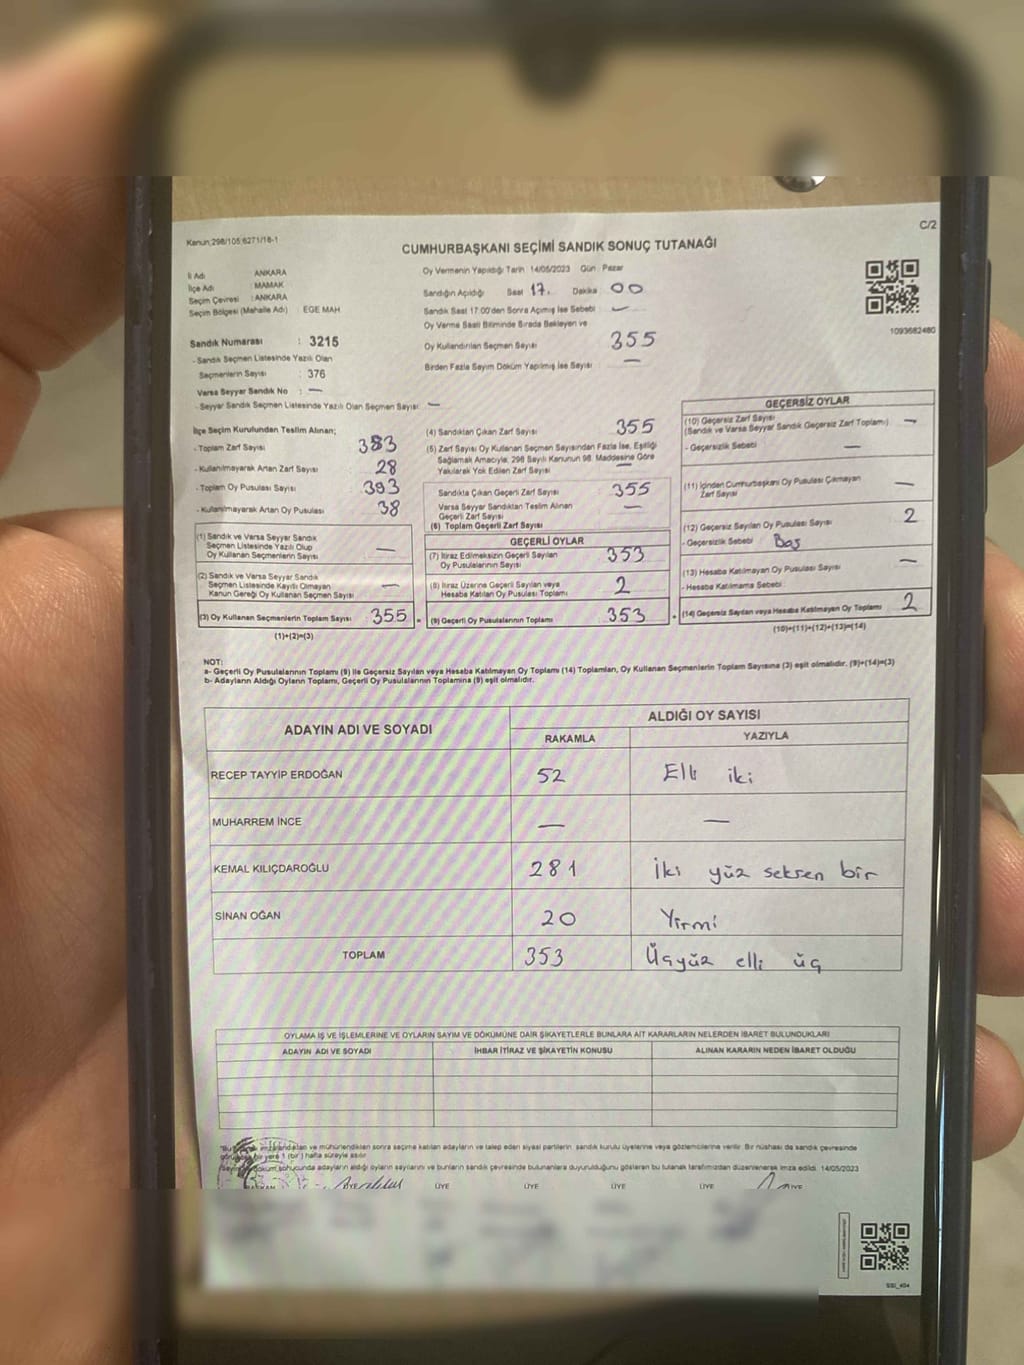 Kanun;298/105;6271/16-1
C/2
CUMHURBAŞKANI SEÇİMİ SANDIK SONUÇ TUTANAĞI
İl Adı ANKARA
İlçe Adı MAMAK
Seçim Çevresi : ANKARA
Seçim Bölgesi (Mahalle Adı) EGE MAH
Sandık Numarası : 3215
- Sandık Seçmen Listesinde Yazılı Olan
Seçmenlerin Sayısı : 376
Varsa Seyyar Sandık No : —
- Seyyar Sandık Seçmen Listesinde Yazılı Olan Seçmen Sayısı: —
Oy Vermenin Yapıldığı Tarih : 14/05/2023 Gün : Pazar
Sandığın Açıldığı Saat 17. Dakika 00
Sandık Saat 17:00'den Sonra Açımış İse Sebebi : —
Oy Verme Saati Bitiminde Sırada Bekleyen ve
Oy Kullandırılan Seçmen Sayısı 355
Birden Fazla Sayım Döküm Yapılmış İse Sayısı —
1093682480
İlçe Seçim Kurulundan Teslim Alınan;
- Toplam Zarf Sayısı 383
- Kullanılmayarak Artan Zarf Sayısı 28
- Toplam Oy Pusulası Sayısı 393
- Kullanılmayarak Artan Oy Pusulası 38
(1) Sandık ve Varsa Seyyar Sandık
Seçmen Listesinde Yazılı Olup
Oy Kullanan Seçmenlerin Sayısı —
(2) Sandık ve Varsa Seyyar Sandık
Seçmen Listesinde Kayıtlı Olmayan
Kanun Gereği Oy Kullanan Seçmen Sayısı —
(3) Oy Kullanan Seçmenlerin Toplam Sayısı 355 =
(1)+(2)=(3)
(4) Sandıktan Çıkan Zarf Sayısı 355
(5) Zarf Sayısı Oy Kullanan Seçmen Sayısından Fazla İse, Eşitliği
Sağlamak Amacıyla; 298 Sayılı Kanunun 98. Maddesine Göre
Yakılarak Yok Edilen Zarf Sayısı —
Sandıkta Çıkan Geçerli Zarf Sayısı 355
Varsa Seyyar Sandıktan Teslim Alınan
Geçerli Zarf Sayısı —
(6) Toplam Geçerli Zarf Sayısı
GEÇERLİ OYLAR
(7) İtiraz Edilmeksizin Geçerli Sayılan
Oy Pusulalarının Sayısı 353
(8) İtiraz Üzerine Geçerli Sayılan veya
Hesaba Katılan Oy Pusulası Toplamı 2
(9) Geçerli Oy Pusulalarının Toplamı 353 +
GEÇERSİZ OYLAR
(10) Geçersiz Zarf Sayısı
(Sandık ve Varsa Seyyar Sandık Geçersiz Zarf Toplamı) —
- Geçersizlik Sebebi —
(11) İçinden Cumhurbaşkanı Oy Pusulası Çıkmayan
Zarf Sayısı —
(12) Geçersiz Sayılan Oy Pusulası Sayısı 2
- Geçersizlik Sebebi Boş
(13) Hesaba Katılmayan Oy Pusulası Sayısı —
- Hesaba Katılmama Sebebi
(14) Geçersiz Sayılan veya Hesaba Katılmayan Oy Toplamı 2
(10)+(11)+(12)+(13)=(14)
NOT:
a- Geçerli Oy Pusulalarının Toplamı (9) ile Geçersiz Sayılan veya Hesaba Katılmayan Oy Toplamı (14) Toplamları, Oy Kullanan Seçmenlerin Toplam Sayısına (3) eşit olmalıdır. (9)+(14)=(3)
b- Adayların Aldığı Oyların Toplamı, Geçerli Oy Pusulalarının Toplamına (9) eşit olmalıdır.
ADAYIN ADI VE SOYADI ALDIĞI OY SAYISI
RAKAMLA YAZIYLA
RECEP TAYYİP ERDOĞAN 52 Elli iki
MUHARREM İNCE — —
KEMAL KILIÇDAROĞLU 281 İki yüz seksen bir
SİNAN OĞAN 20 Yirmi
TOPLAM 353 Üçyüz elli üç
OYLAMA İŞ VE İŞLEMLERİNE VE OYLARIN SAYIM VE DÖKÜMÜNE DAİR ŞİKAYETLERLE BUNLARA AİT KARARLARIN NELERDEN İBARET BULUNDUKLARI
ADAYIN ADI VE SOYADI İHBAR İTİRAZ VE ŞİKAYETİN KONUSU ALINAN KARARIN NEDEN İBARET OLDUĞU
ve mühürlendikten sonra seçime katılan adayların ve talep eden siyasi partilerin sandık kurulu üyelerine veya gözlemcilerine verilir. Bir nüshası da sandık çevresinde
bir yere 1 (bir) hafta süreyle asılır.
döküm sonucunda adayların aldığı oyların sayılarını ve bunların sandık çevresinde bulunanlara duyurulduğunu gösteren bu tutanak tarafımızdan düzenlenerek imza edildi. 14/05/2023
BAŞKAN ÜYE ÜYE ÜYE ÜYE ÜYE
SSI_404